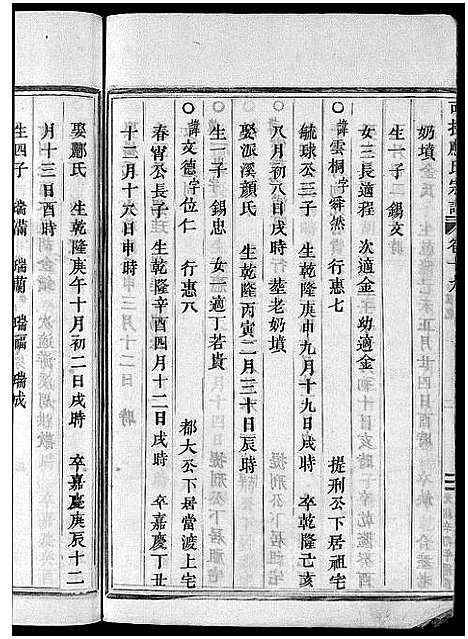 奶墳
生一子 錫文
女三長適程 次適金 幼適金
諱雲桐字舜然 行惠七 提刑公下居祖宅
毓球公三子 生乾隆庚申九月十九日戌時 卒乾隆己亥
八月初八日戌時 塟老奶墳
娶派溪顏氏 生乾隆丙寅二月三十日辰時
生一子 錫忠 女適丁若貴
諱文德字位仁 行惠六 都大公下居當渡上宅
春宵公長子 生乾隆辛酉四月十二日戌時 卒嘉慶丁丑
十二月十六日申時
娶酈氏 生乾隆庚午十月初二日戌時 卒嘉慶庚辰十二
月十三日酉時
生四子 瑞滿 瑞蘭 瑞福 瑞成